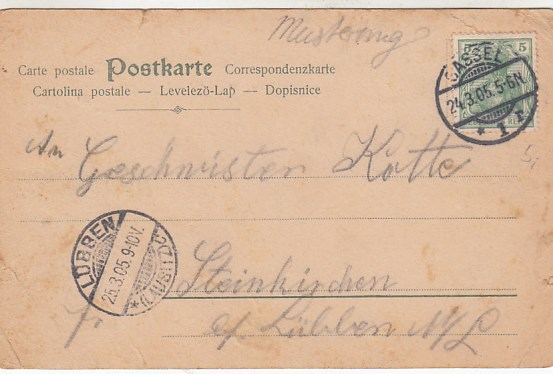 Musterung
5
Carte postale Postkarte Correspondenzkarte
Cartolina postale — Levelezö-Lap — Dopisnice
CASSEL
24.3.05.5-6N.
* 1 r.
An Geschwister Kotte
LÜBBEN
25.3.05.9-10V.
* (LAUSITZ)
Steinkirchen
b/ Lübben N/L